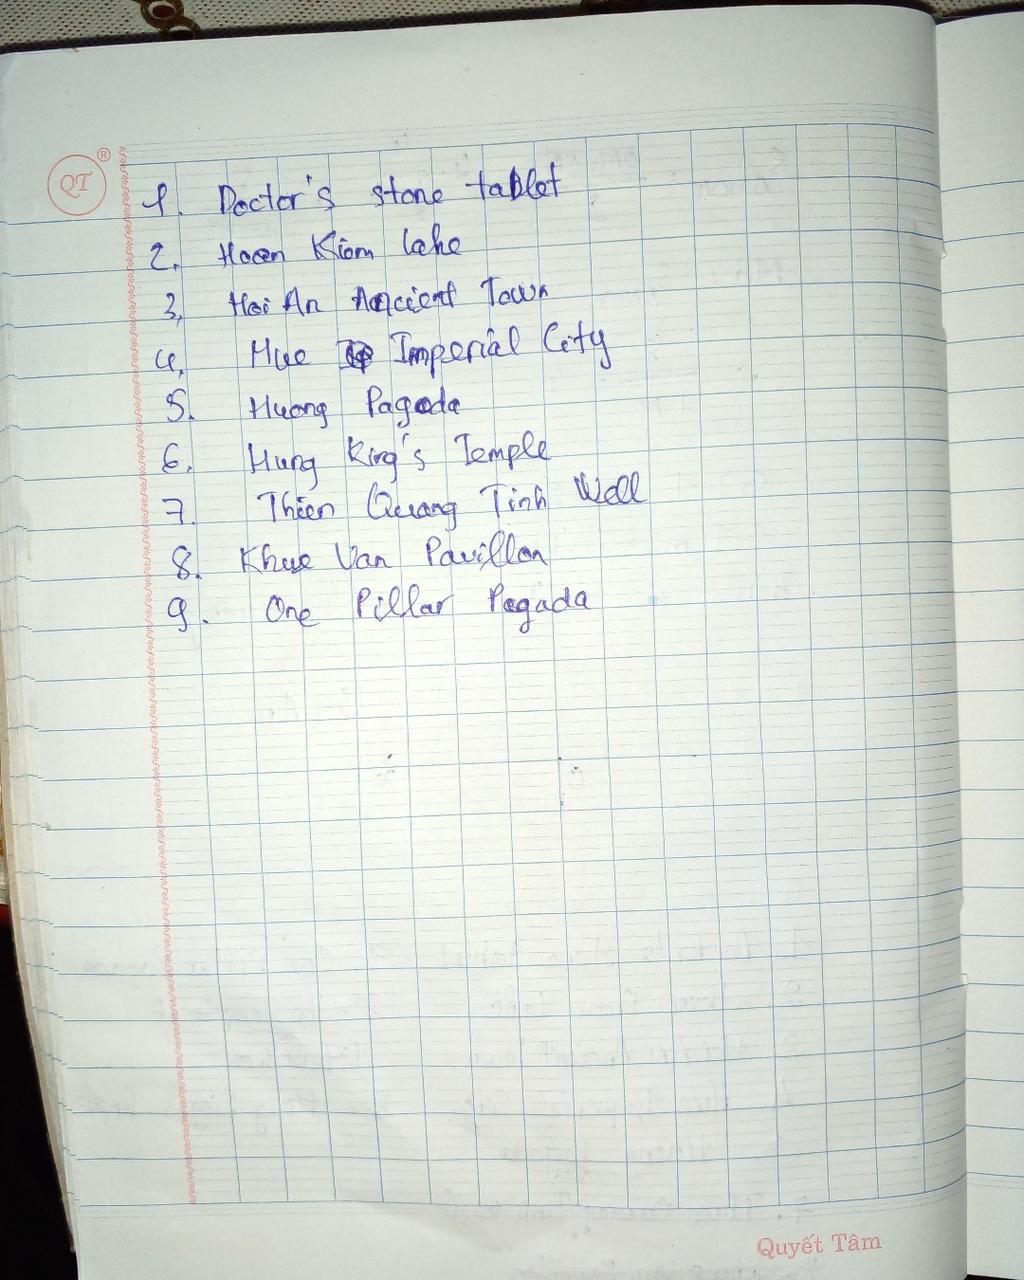 QT ®
1. Doctor's stone tablet
2. Hoan Kiom lake
3, Hoi An Ancient Town
4, Hue Imperial City
5. Huong Pagoda
6. Hung King's Temple
7. Thien Quang Tinh Well
8. Khue Van Pavillon
9. One Pillar Pagada
Quyết Tâm